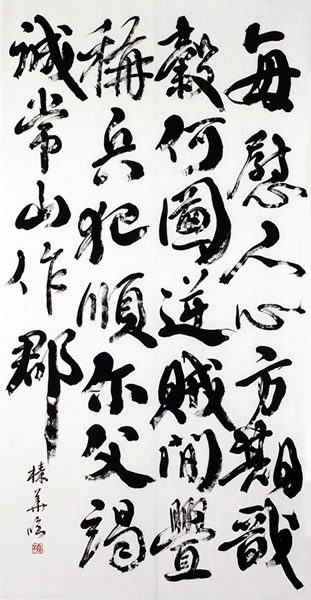 每慰人心方期戩
穀何圖逆賊間釁
稱兵犯順尔父竭
誠常山作郡
榛華臨